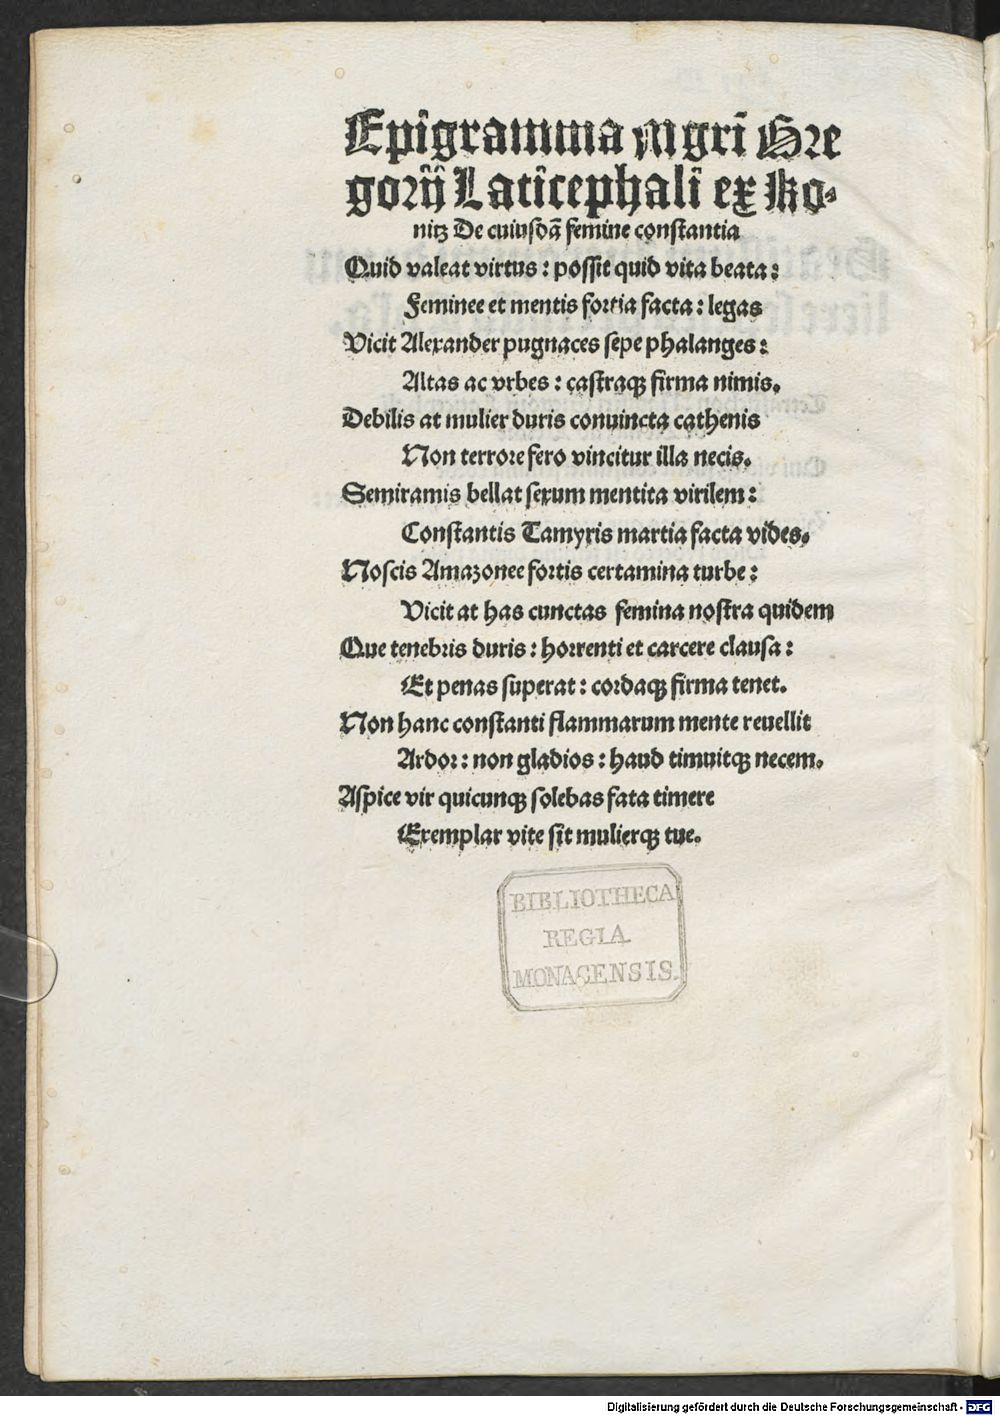 Epigramma Mgri Gre
gorij Laticephali ex Ko-
nitz De cuiusdã femine constantia
Quid valeat virtus: possit quid vita beata:
Feminee et mentis fortia facta: legas
Vicit Alexander pugnaces sepe phalanges:
Altas ac vrbes: castraqȝ firma nimis.
Debilis at mulier duris conuincta cathenis
Non terrore fero vincitur illa necis.
Semiramis bellat sexum mentita virilem:
Constantis Tamyris martia facta vides.
Noscis Amazonee fortis certamina turbe:
Vicit at has cunctas femina nostra quidem
Que tenebris duris: horrenti et carcere clausa:
Et penas superat: cordaqȝ firma tenet.
Non hanc constanti flammarum mente reuellit
Ardor: non gladios: haud timuitqȝ necem.
Aspice vir quicunqȝ solebas fata timere
Exemplar vite sit mulierqȝ tue.
BIBLIOTHECA
REGIA
MONACENSIS.
Digitalisierung gefördert durch die Deutsche Forschungsgemeinschaft - DFG